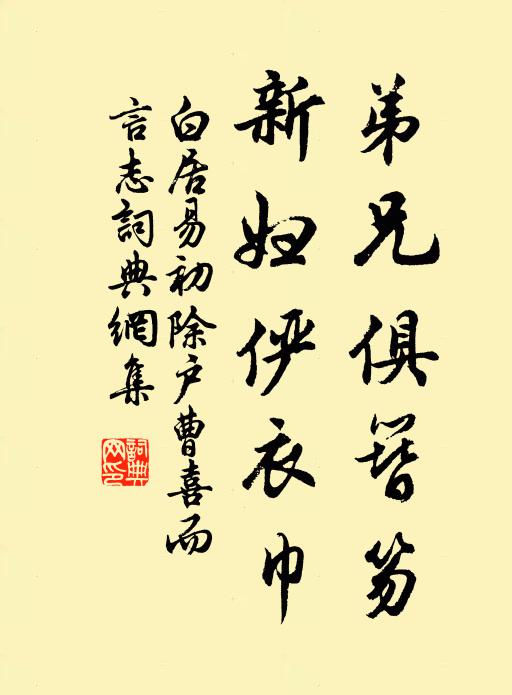 弟兄俱簪笏
新妇俨衣巾
白居易初除户曹喜而
言志詞典網集
詞典
网印